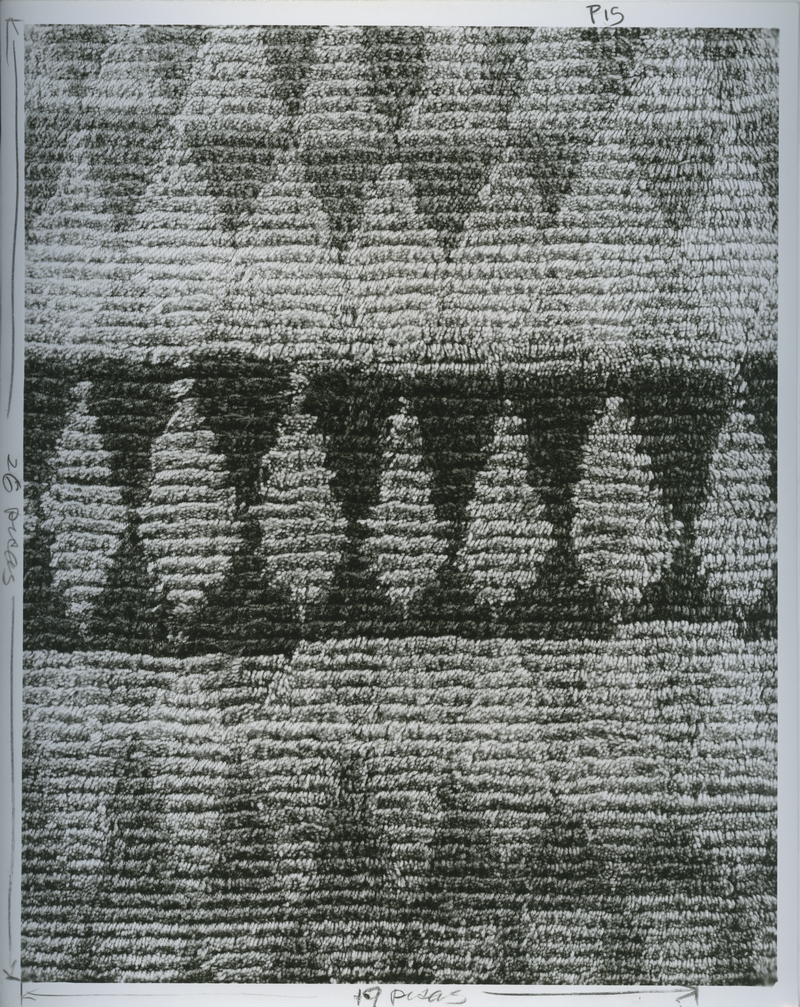 P15
26 picas
19 picas